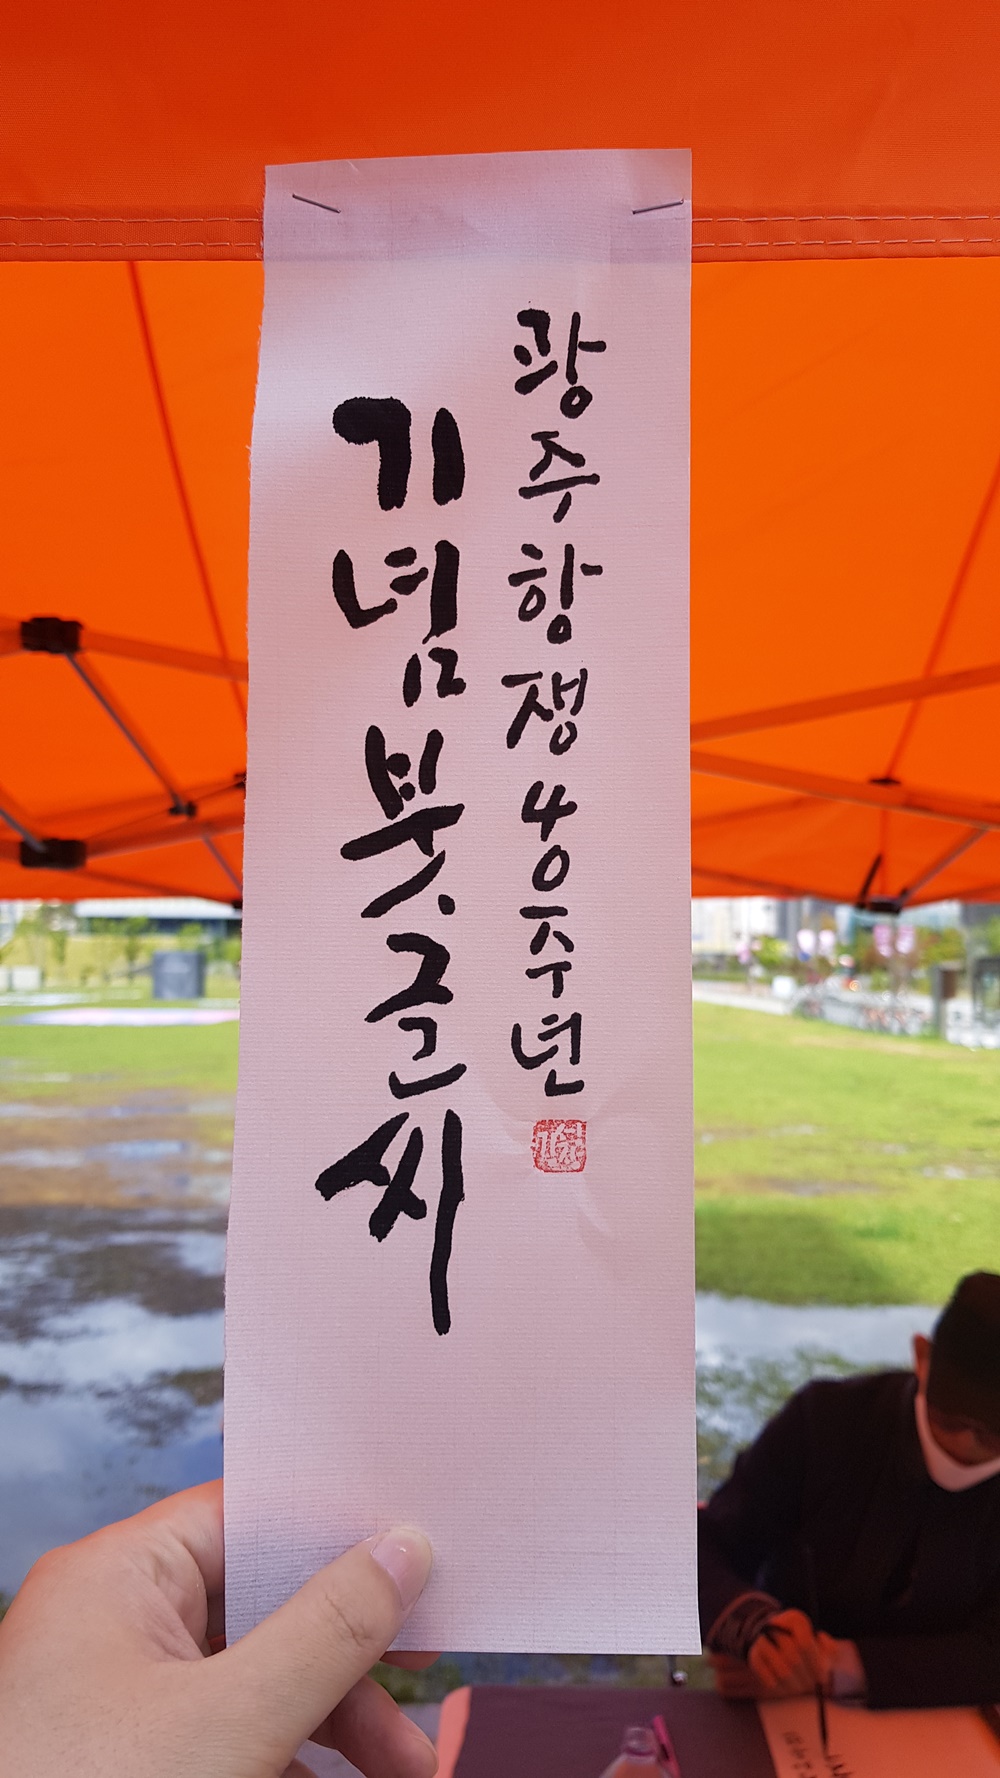 광주항쟁40주년
기념붓글씨